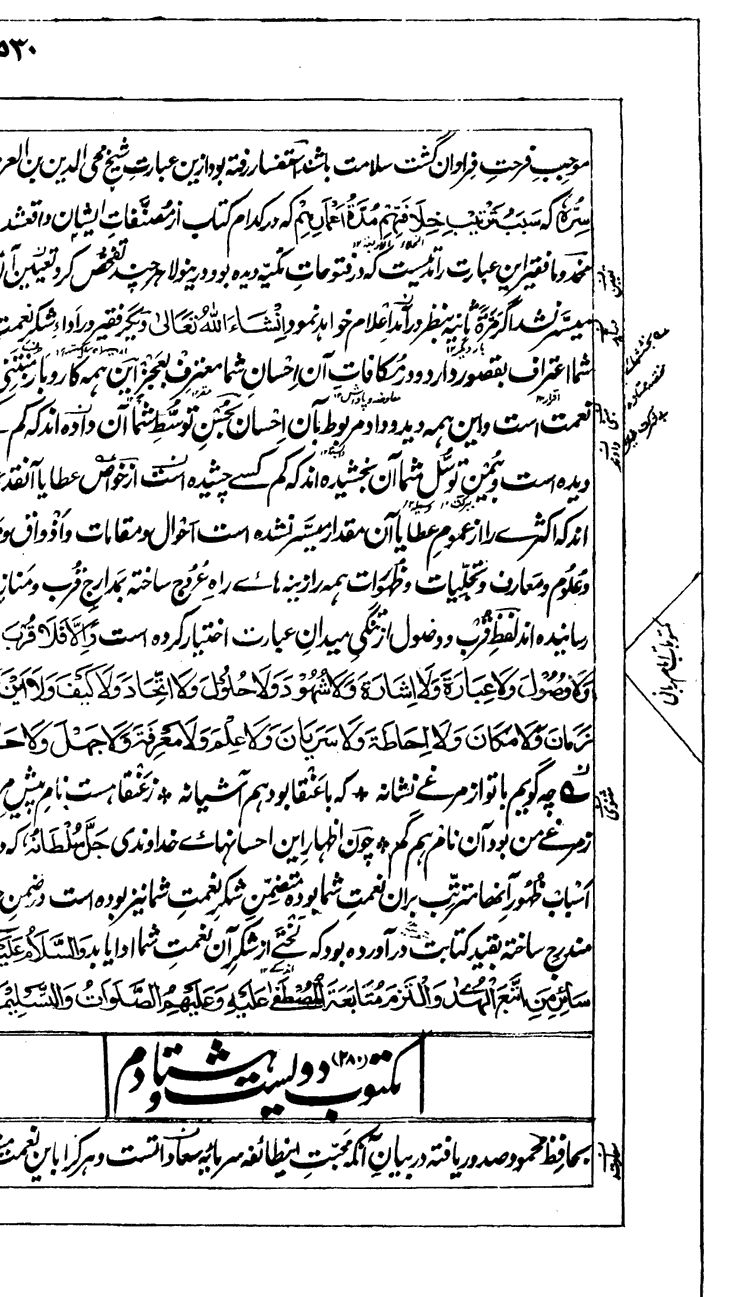 ۵۳۰
موجب فرحت فراوان گشت سلامت باشند استفسار رفته بود ازین عبارت شیخ محی الدین بن العر
سِرُّهٗ که سَبَبُ تَرْتِیْبِ خِلَافَتِهِمْ مُدَّةُ اَعْمَارِهِمْ که در کدام کتاب از مصنّفات ایشان واقعشد
مخدوما فقیر این عبارت را در فتوحات مکّیّه دیده بود درینولا هرچند تفحّص کرد تعیین آن
میسّر نشد اگر مَرَّةً ثانیه بنظر درآمد اعلام خواهد نمود اِنْشَاءَ اللهُ تَعَالٰی دیگر فقیر در اداء شکر نعمت
شما اعتراف بقصور دارد و در مکافات آن احسان شما معترف بعجز این همه کاروبار مبتنی
نعمت است و این همه دید و داد مربوط بآن احسان بحسن توسّط شما آن داده اند که کم
دیده است و بیُمن توسّل شما آن بخشیده اند که کم کسے چشیده است از خواصّ عطایا آنقد
اند که اکثرے را از عموم عطایا آن مقدار میسّر نشده است احوال و مقامات و اذواق و
و علوم و معارف و تجلّیات و ظهورات همه را زینه هاے راه عروج ساخته بمدارج قرب و مناز
رسانیده اند لفظ قرب و وصول از تنگیِ میدان عبارت اختیار کرده است وَاِلَّا فَلَا قُرْبَ
وَلَا وُصُوْلَ وَلَا عِبَارَةَ وَلَا اِشَارَةَ وَلَا شُهُوْدَ وَلَا حُلُوْلَ وَلَا اتِّحَادَ وَلَا کَیْفَ وَلَا اَیْنَ
زَمَانَ وَلَا مَکَانَ وَلَا اِحَاطَةَ وَلَا سَرَیَانَ وَلَا عِلْمَ وَلَا مَعْرِفَةَ وَلَا جَهْلَ وَلَا حَ
چه گویم با تو از مرغے نشانه * که با عنقا بود هم آشیانه * ز عنقا هست نام پیش مر
ز مرغ من بود آن نام هم گم * چون اظهار این احسانهاے خداوندی جَلَّ سُلْطَانُهٗ که د
اسباب ظهور آنها مترتّب بران نعمت شما بوده متضمّن شکر نعمت شما نیز بوده است در ضمن
مندرج ساخته بقید کتابت در آورده بود که لختے از شکر آن نعمت شما ادا یابد وَالسَّلَامُ عَلَیْ
سَائِرِ مَنِ اتَّبَعَ الْهُدٰی وَالْتَزَمَ مُتَابَعَةَ الْمُصْطَفٰی عَلَیْهِ وَعَلَیْهِمُ الصَّلَوَاتُ وَالتَّسْلِیْمَ
مکتوبات امام ربانی
مکتوب (۲۸۰) دولیست و هشتادم
بحافظ محمود صدور یافته در بیان آنکه محبّت اینطائفه سرمایۀ سعاداتست و هرکرا باین نعمت